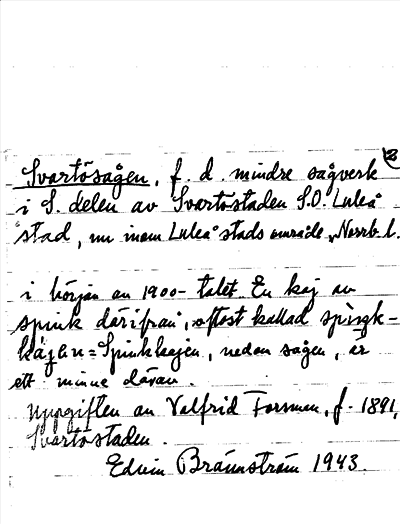 2
Svartösågen, f. d. mindre sågverk
i S. delen av Svartöstaden S.O. Luleå
stad, nu inom Luleå stads område, Norrb. l.
i början av 1900-talet. En kaj av
spink därifrån, oftast kallad spingk-
kájen = Spinkkajen, nedan sågen, är
ett minne därav.
Uppgiften av Valfrid Forsman, f. 1891,
Svartöstaden.
Edvin Brännström 1943.